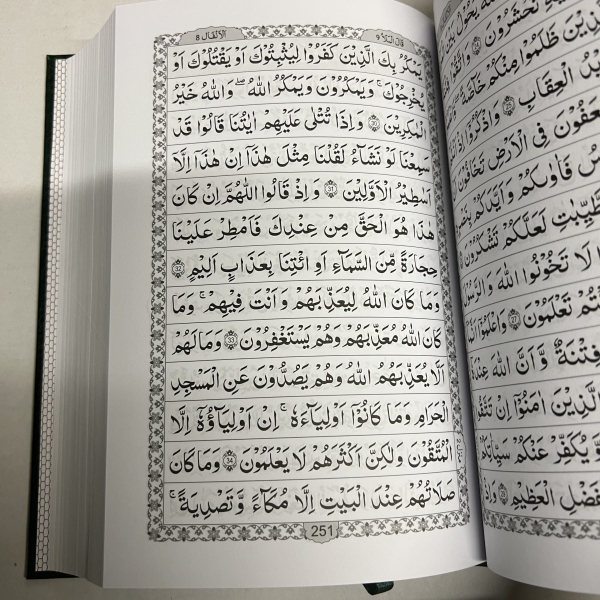 قَالَ الْمَلَاُ ٩
اَلْاَنْفَال 8
يَمْكُرُ بِكَ الَّذِيْنَ كَفَرُوْا لِيُثْبِتُوْكَ اَوْ يَقْتُلُوْكَ اَوْ
يُخْرِجُوْكَ ؕ وَيَمْكُرُوْنَ وَيَمْكُرُ اللّٰهُ ؕ وَاللّٰهُ خَيْرُ
الْمٰكِرِيْنَ 30 وَاِذَا تُتْلٰى عَلَيْهِمْ اٰيٰتُنَا قَالُوْا قَدْ
سَمِعْنَا لَوْ نَشَآءُ لَقُلْنَا مِثْلَ هٰذَاۤ اِنْ هٰذَاۤ اِلَّاۤ
اَسَاطِيْرُ الْاَوَّلِيْنَ 31 وَاِذْ قَالُوا اللّٰهُمَّ اِنْ كَانَ
هٰذَا هُوَ الْحَقَّ مِنْ عِنْدِكَ فَاَمْطِرْ عَلَيْنَا
حِجَارَةً مِّنَ السَّمَآءِ اَوِ ائْتِنَا بِعَذَابٍ اَلِيْمٍ 32
وَمَا كَانَ اللّٰهُ لِيُعَذِّبَهُمْ وَاَنْتَ فِيْهِمْ ؕ وَمَا
كَانَ اللّٰهُ مُعَذِّبَهُمْ وَهُمْ يَسْتَغْفِرُوْنَ 33 وَمَا لَهُمْ
اَلَّا يُعَذِّبَهُمُ اللّٰهُ وَهُمْ يَصُدُّوْنَ عَنِ الْمَسْجِدِ
الْحَرَامِ وَمَا كَانُوْۤا اَوْلِيَآءَهٗ ؕ اِنْ اَوْلِيَآؤُهٗۤ اِلَّا
الْمُتَّقُوْنَ وَلٰكِنَّ اَكْثَرَهُمْ لَا يَعْلَمُوْنَ 34 وَمَا كَانَ
صَلَاتُهُمْ عِنْدَ الْبَيْتِ اِلَّا مُكَآءً وَّتَصْدِيَةً ؕ
251
يَحُوْلُ بَيْنَ
تُحْشَرُوْنَ
ظَلَمُوْا مِنْكُمْ خَآصَّةً
الْعِقَابِ 25 وَاذْكُرُوْۤا
فِي الْاَرْضِ تَخَافُوْنَ
فَاٰوٰىكُمْ وَاَيَّدَكُمْ
لَعَلَّكُمْ تَشْكُرُوْنَ
لَا تَخُوْنُوا اللّٰهَ وَالرَّسُوْلَ
تَعْلَمُوْنَ 27 وَاعْلَمُوْۤا
فِتْنَةٌ وَّاَنَّ اللّٰهَ عِنْدَهٗۤ
الَّذِيْنَ اٰمَنُوْۤا اِنْ
وَّيُكَفِّرْ عَنْكُمْ سَيِّاٰتِكُمْ
الْفَضْلِ الْعَظِيْمِ وَاِذْ